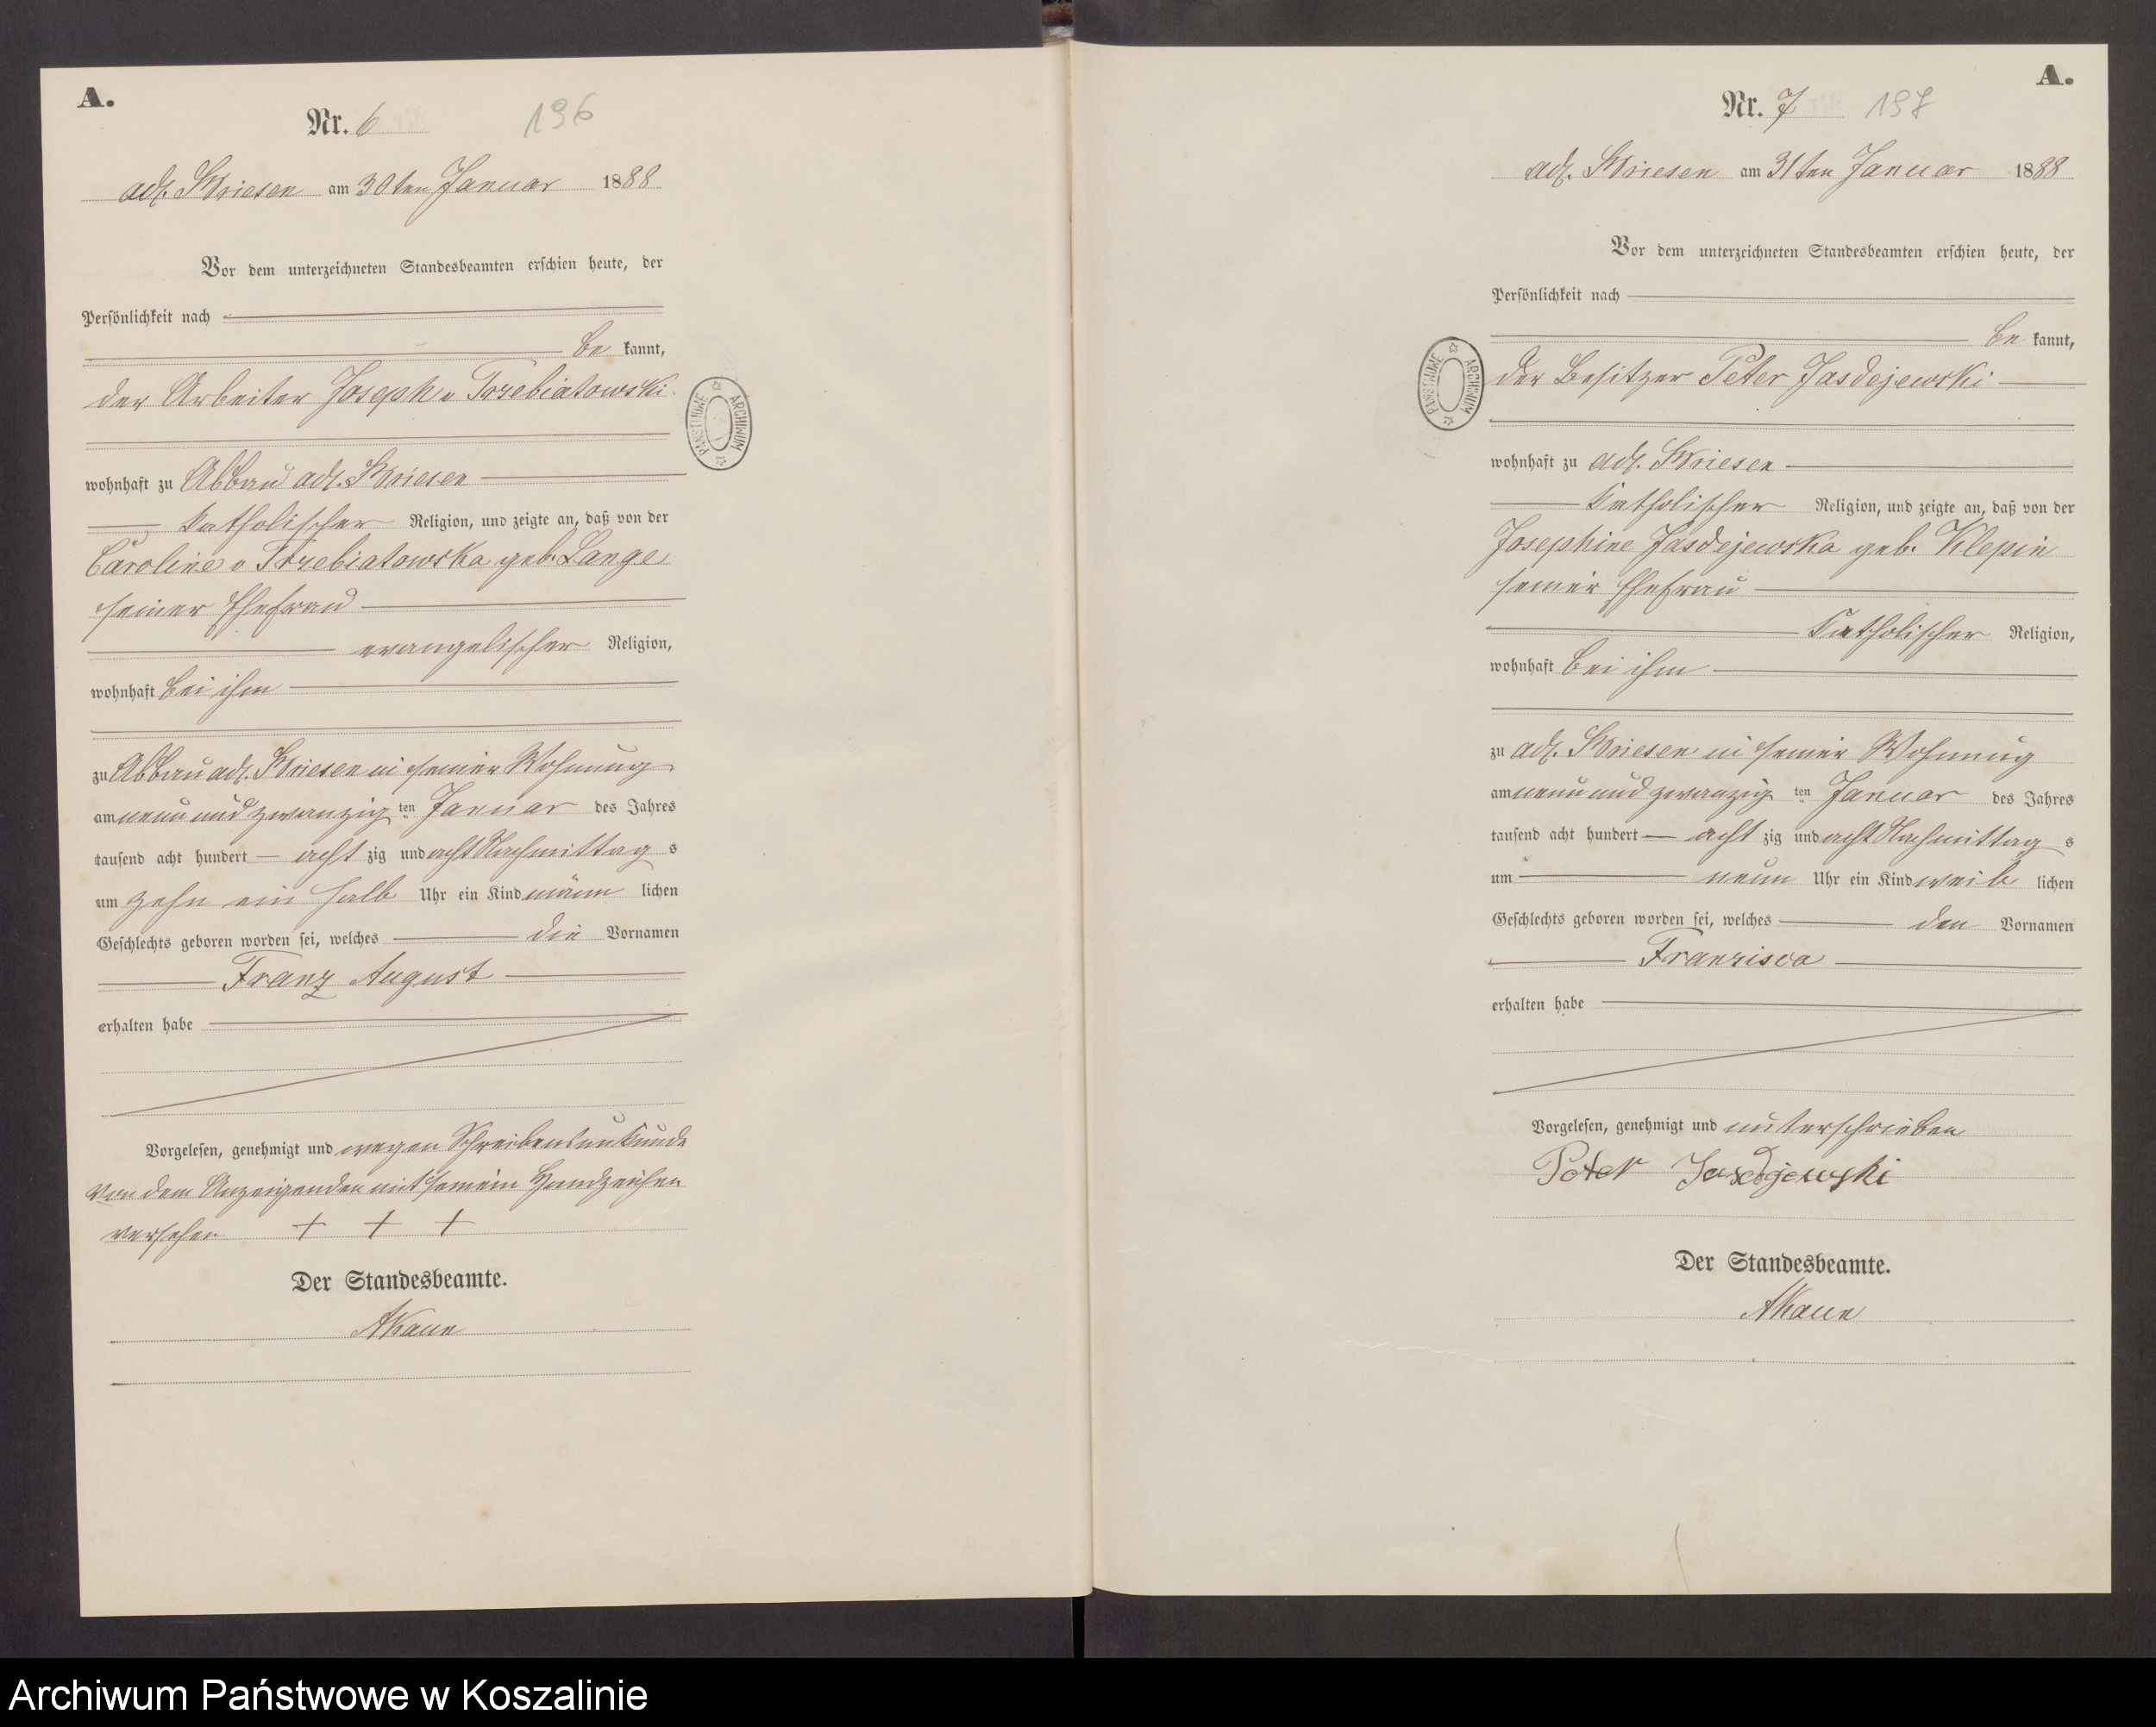 A.
Nr. 6
196
adl. Briesen am 30ten Januar 1888
Vor dem unterzeichneten Standesbeamten erschien heute, der
Persönlichkeit nach
be kannt,
der Arbeiter Joseph v Trzebiatowski
wohnhaft zu Abbau adl. Briesen
katholischer Religion, und zeigte an, daß von der
Caroline v Trzebiatowska geb. Lange
seiner Ehefrau
evangelischer Religion,
wohnhaft bei ihm
zu Abbau adl. Briesen in seiner Wohnung
am neun und zwanzig ten Januar des Jahres
tausend acht hundert acht zig und acht Nachmittag s
um zehn ein halb Uhr ein Kind männ lichen
Geschlechts geboren worden sei, welches die Vornamen
Franz August
erhalten habe
Vorgelesen, genehmigt und wegen Schreibensunkunde
von dem Anzeigenden mit seinem Handzeichen
versehen + + +
Der Standesbeamte.
PAŃSTWOWE ARCHIWUM
A.
Nr. 7
197
adl. Briesen am 31ten Januar 1888
Vor dem unterzeichneten Standesbeamten erschien heute, der
Persönlichkeit nach
be kannt,
der Besitzer Peter Jasdejewski
wohnhaft zu adl. Briesen
katholischer Religion, und zeigte an, daß von der
Josephine Jasdejewska geb. Klepin
seiner Ehefrau
katholischer Religion,
wohnhaft bei ihm
zu adl. Briesen in seiner Wohnung
am neun und zwanzig ten Januar des Jahres
tausend acht hundert acht zig und acht Nachmittag s
um neun Uhr ein Kind weib lichen
Geschlechts geboren worden sei, welches den Vornamen
Franzisca
erhalten habe
Vorgelesen, genehmigt und unterschrieben
Peter Jasdejewski
Der Standesbeamte.
PAŃSTWOWE ARCHIWUM
Archiwum Państwowe w Koszalinie